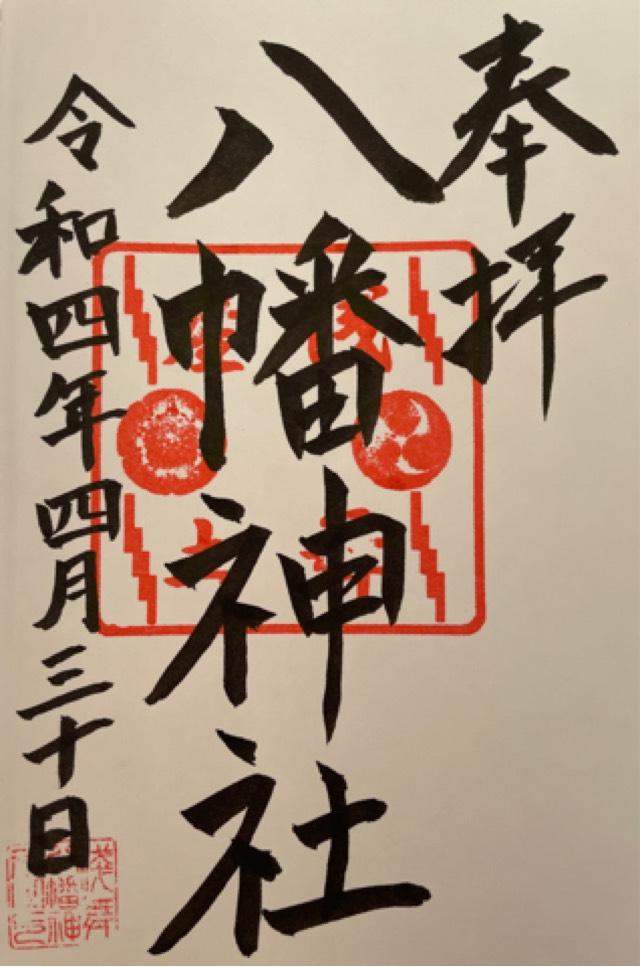 奉拝
八幡神社
令和四年四月三十日